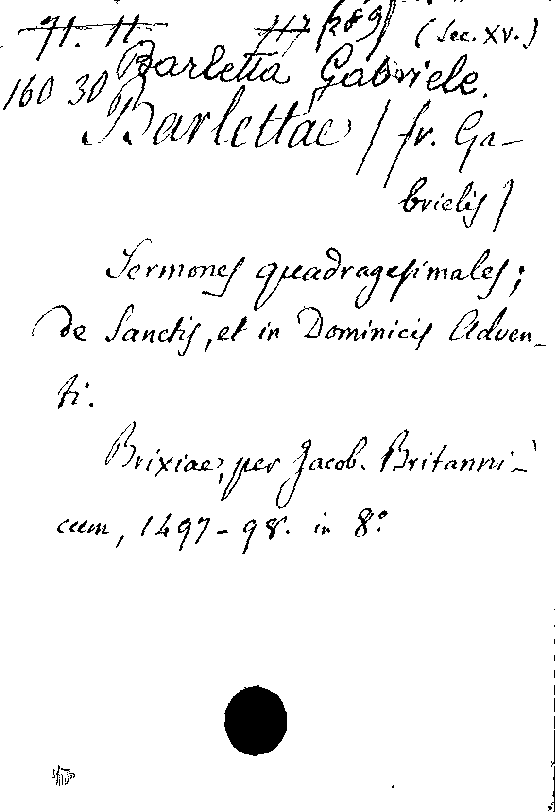 71. 11. 117 (289) (Sec. XV.)
160 30 Barletta Gabriele.
Barlettae / fr. Ga-
brielis /
Sermones quadragesimales;
de Sanctis, et in Dominicis Adven-
ti.
Brixiae, per Jacob. Britanni-
cum, 1497-98. in 8.º